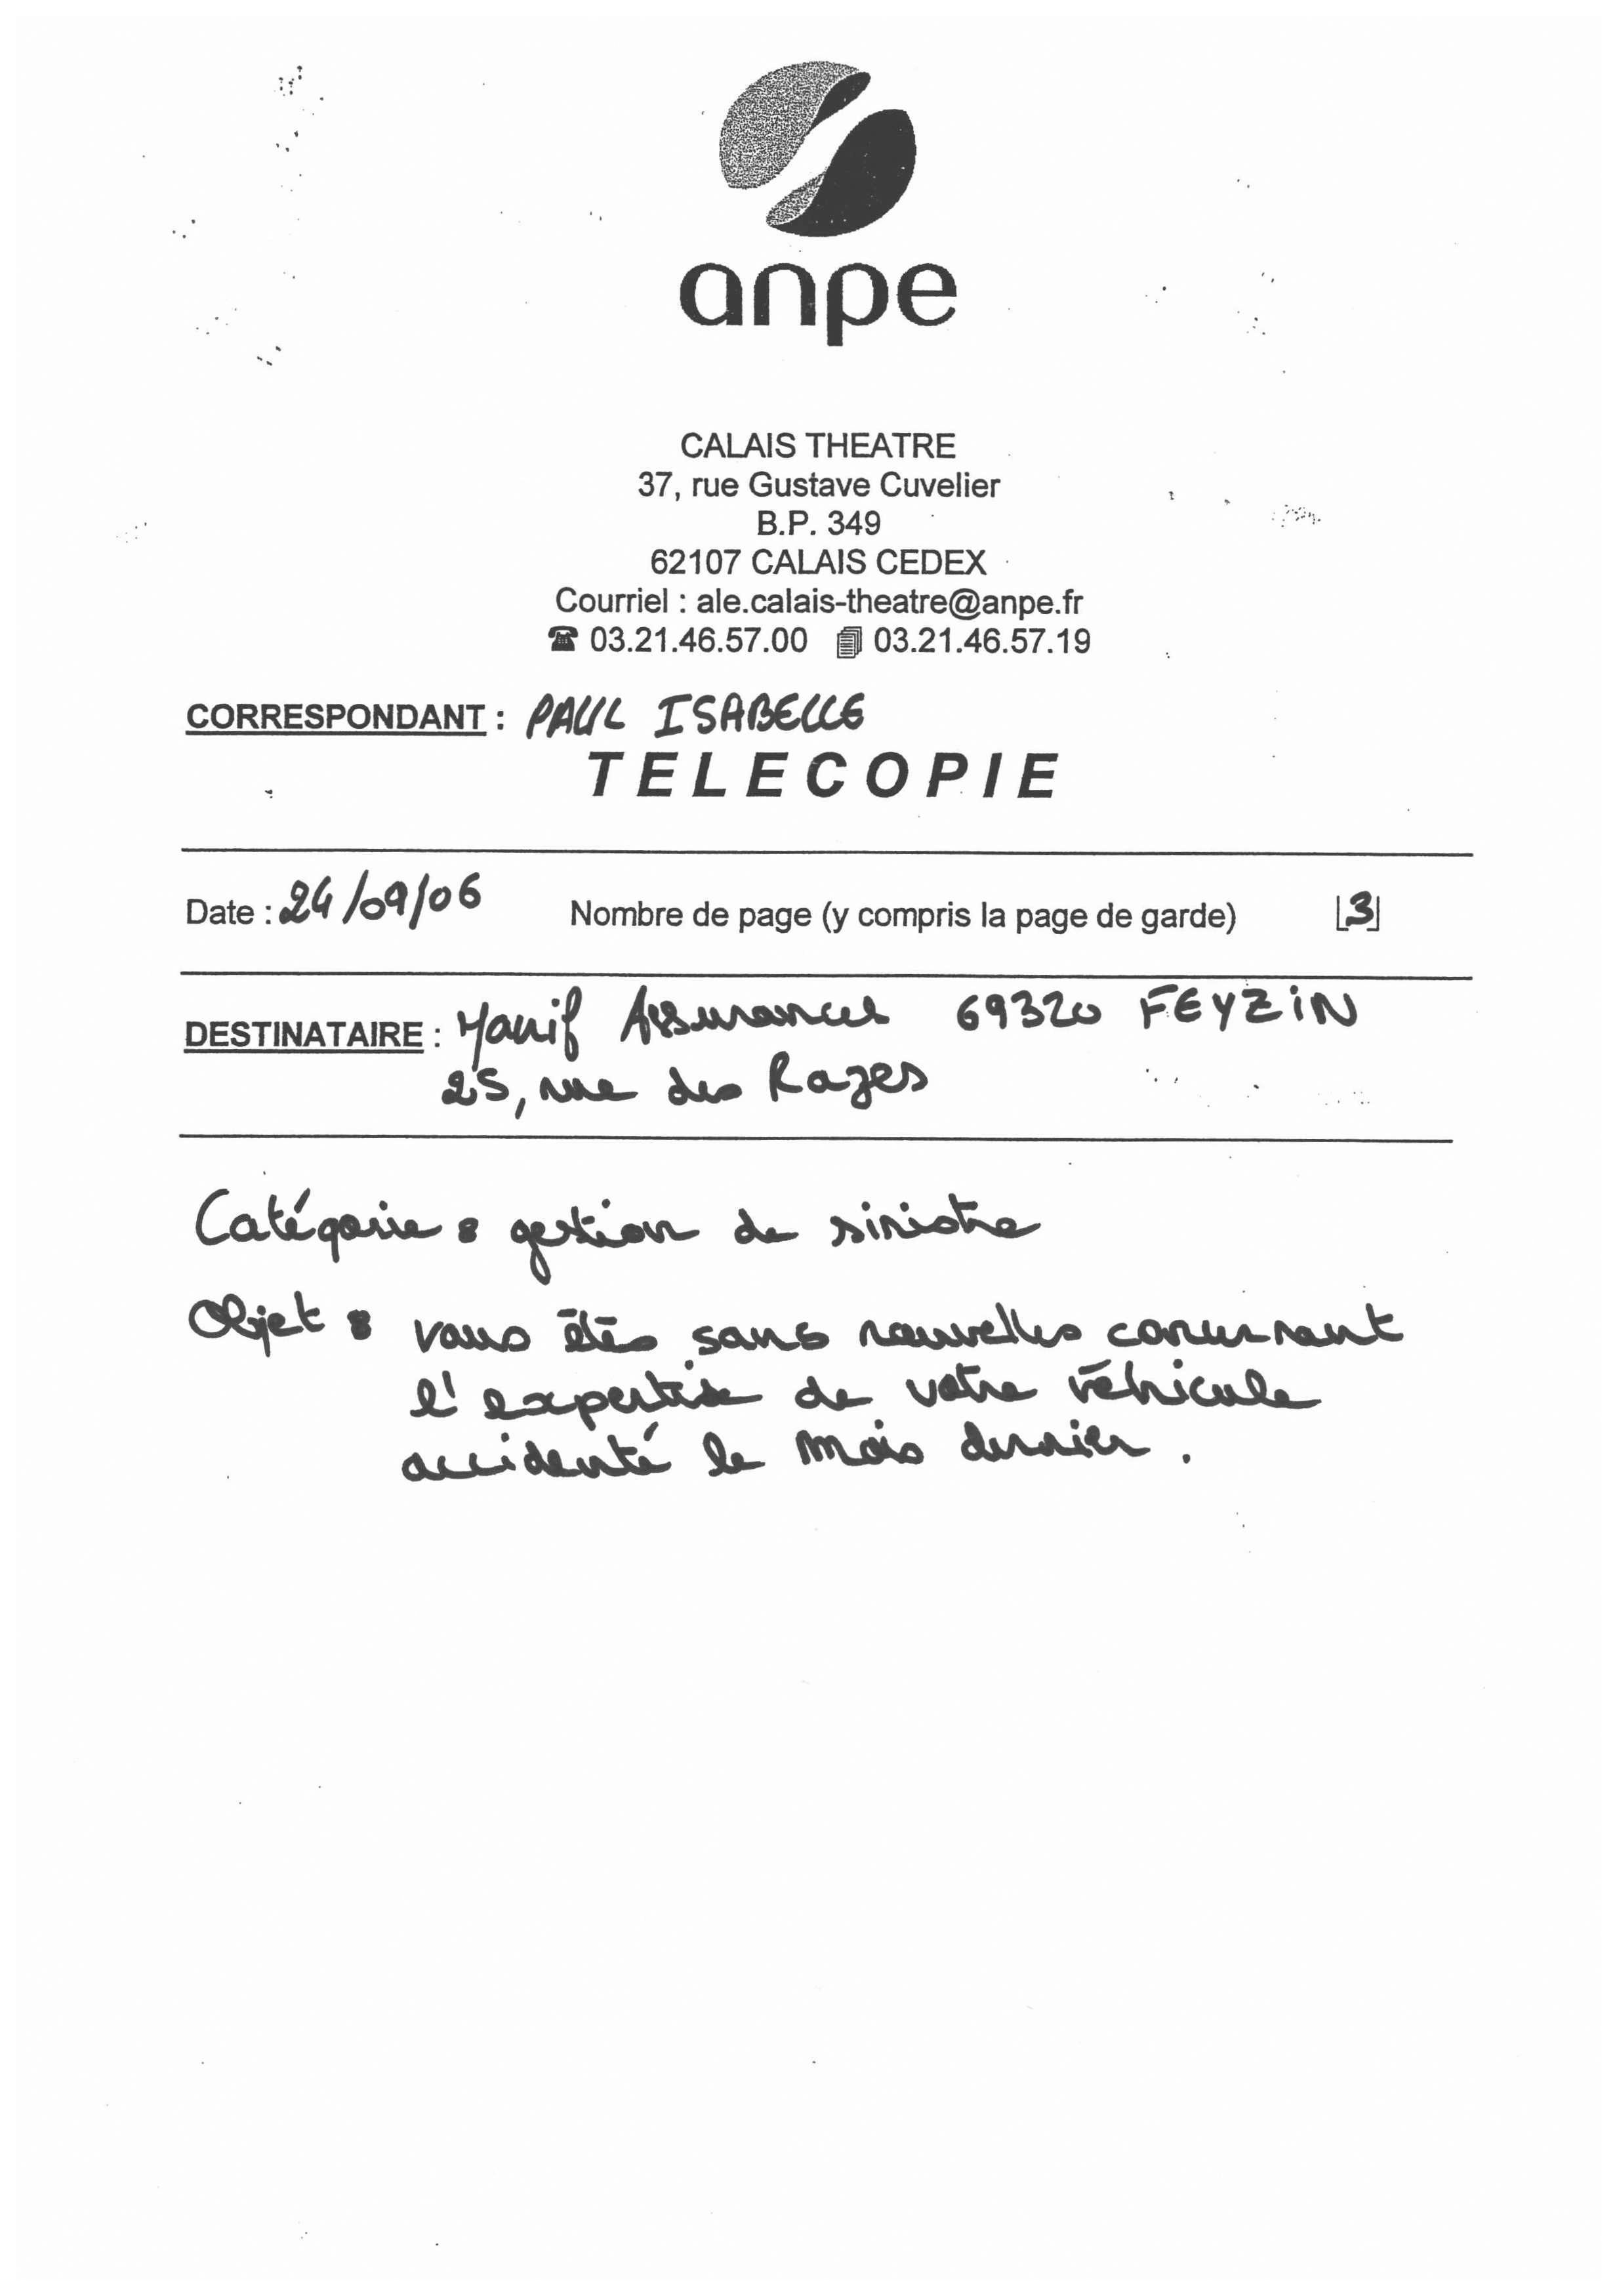 anpe
CALAIS THEATRE
37, rue Gustave Cuvelier
B.P. 349
62107 CALAIS CEDEX
Courriel : ale.calais-theatre@anpe.fr
☎ 03.21.46.57.00 03.21.46.57.19
CORRESPONDANT : PAUL ISABELLE
TELECOPIE
Date : 24/09/06 Nombre de page (y compris la page de garde) |3|
DESTINATAIRE : Manif Assurances 69320 FEYZIN
25, rue des Razes
Catégorie : gestion de sinistre
Objet : vous êtes sans nouvelles concernant
l'expertise de votre véhicule
accidenté le mois dernier.